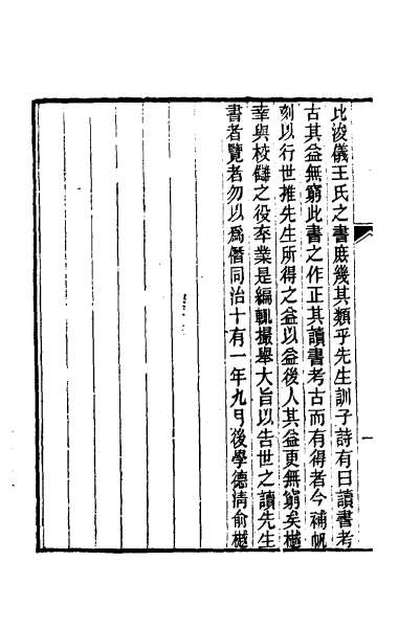 比浚儀王氏之書庶幾其類乎先生訓子詩有曰讀書考
古其益無窮此書之作正其讀書考古而有得者今補帆
刻以行世推先生所得之益以益後人其益更無窮矣樾
幸與校讎之役卒業是編輒撮舉大旨以告世之讀先生
書者覽者勿以爲僭同治十有一年九月後學德淸俞樾